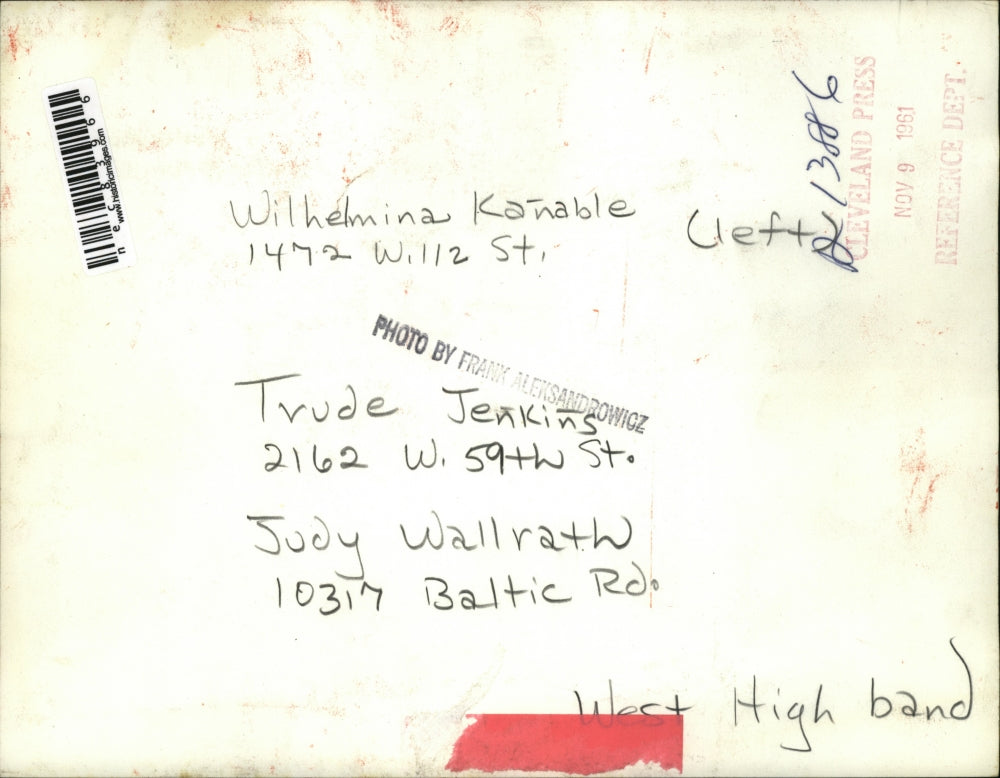 Wilhelmina Kanable
1472 W. 112 St.
(left)
PHOTO BY FRANK ALEKSANDROWICZ
Trude Jenkins
2162 W. 59th St.
Judy Wallrath
10317 Baltic Rd.
West High band
13886
CLEVELAND PRESS
NOV 9 1961
REFERENCE DEPT.
www.historicimages.com